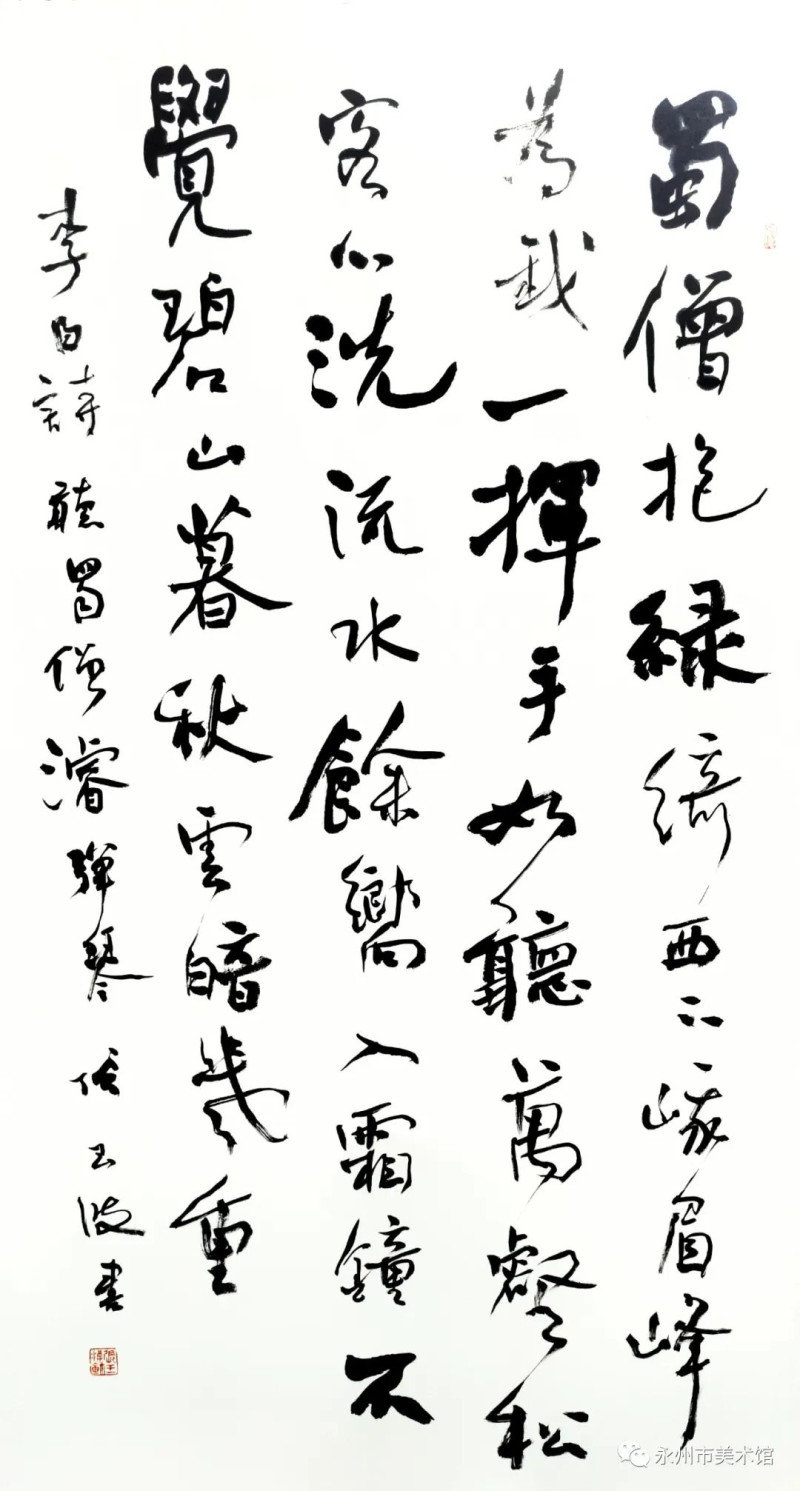 蜀僧抱緑綺西下峨眉峰
為我一揮手如聽萬壑松
客心洗流水餘響入霜鐘不
覺碧山暮秋雲暗幾重
李白詩聽蜀僧濬彈琴 玉波書
永州市美术馆